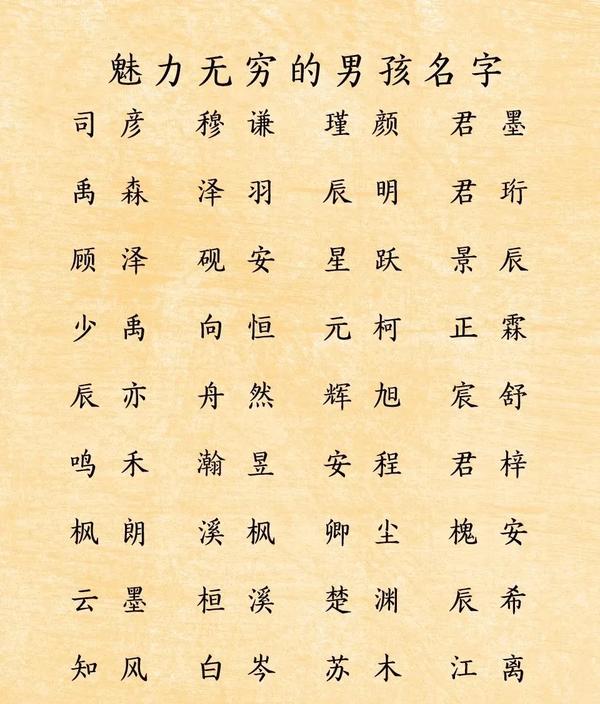 魅力无穷的男孩名字
司彦 穆谦 瑾颜 君墨
禹森 泽羽 辰明 君珩
顾泽 砚安 星跃 景辰
少禹 向恒 元柯 正霖
辰亦 舟然 辉旭 宸舒
鸣禾 瀚昱 安程 君梓
枫朗 溪枫 卿尘 槐安
云墨 桓溪 楚渊 辰希
知风 白岑 苏木 江离